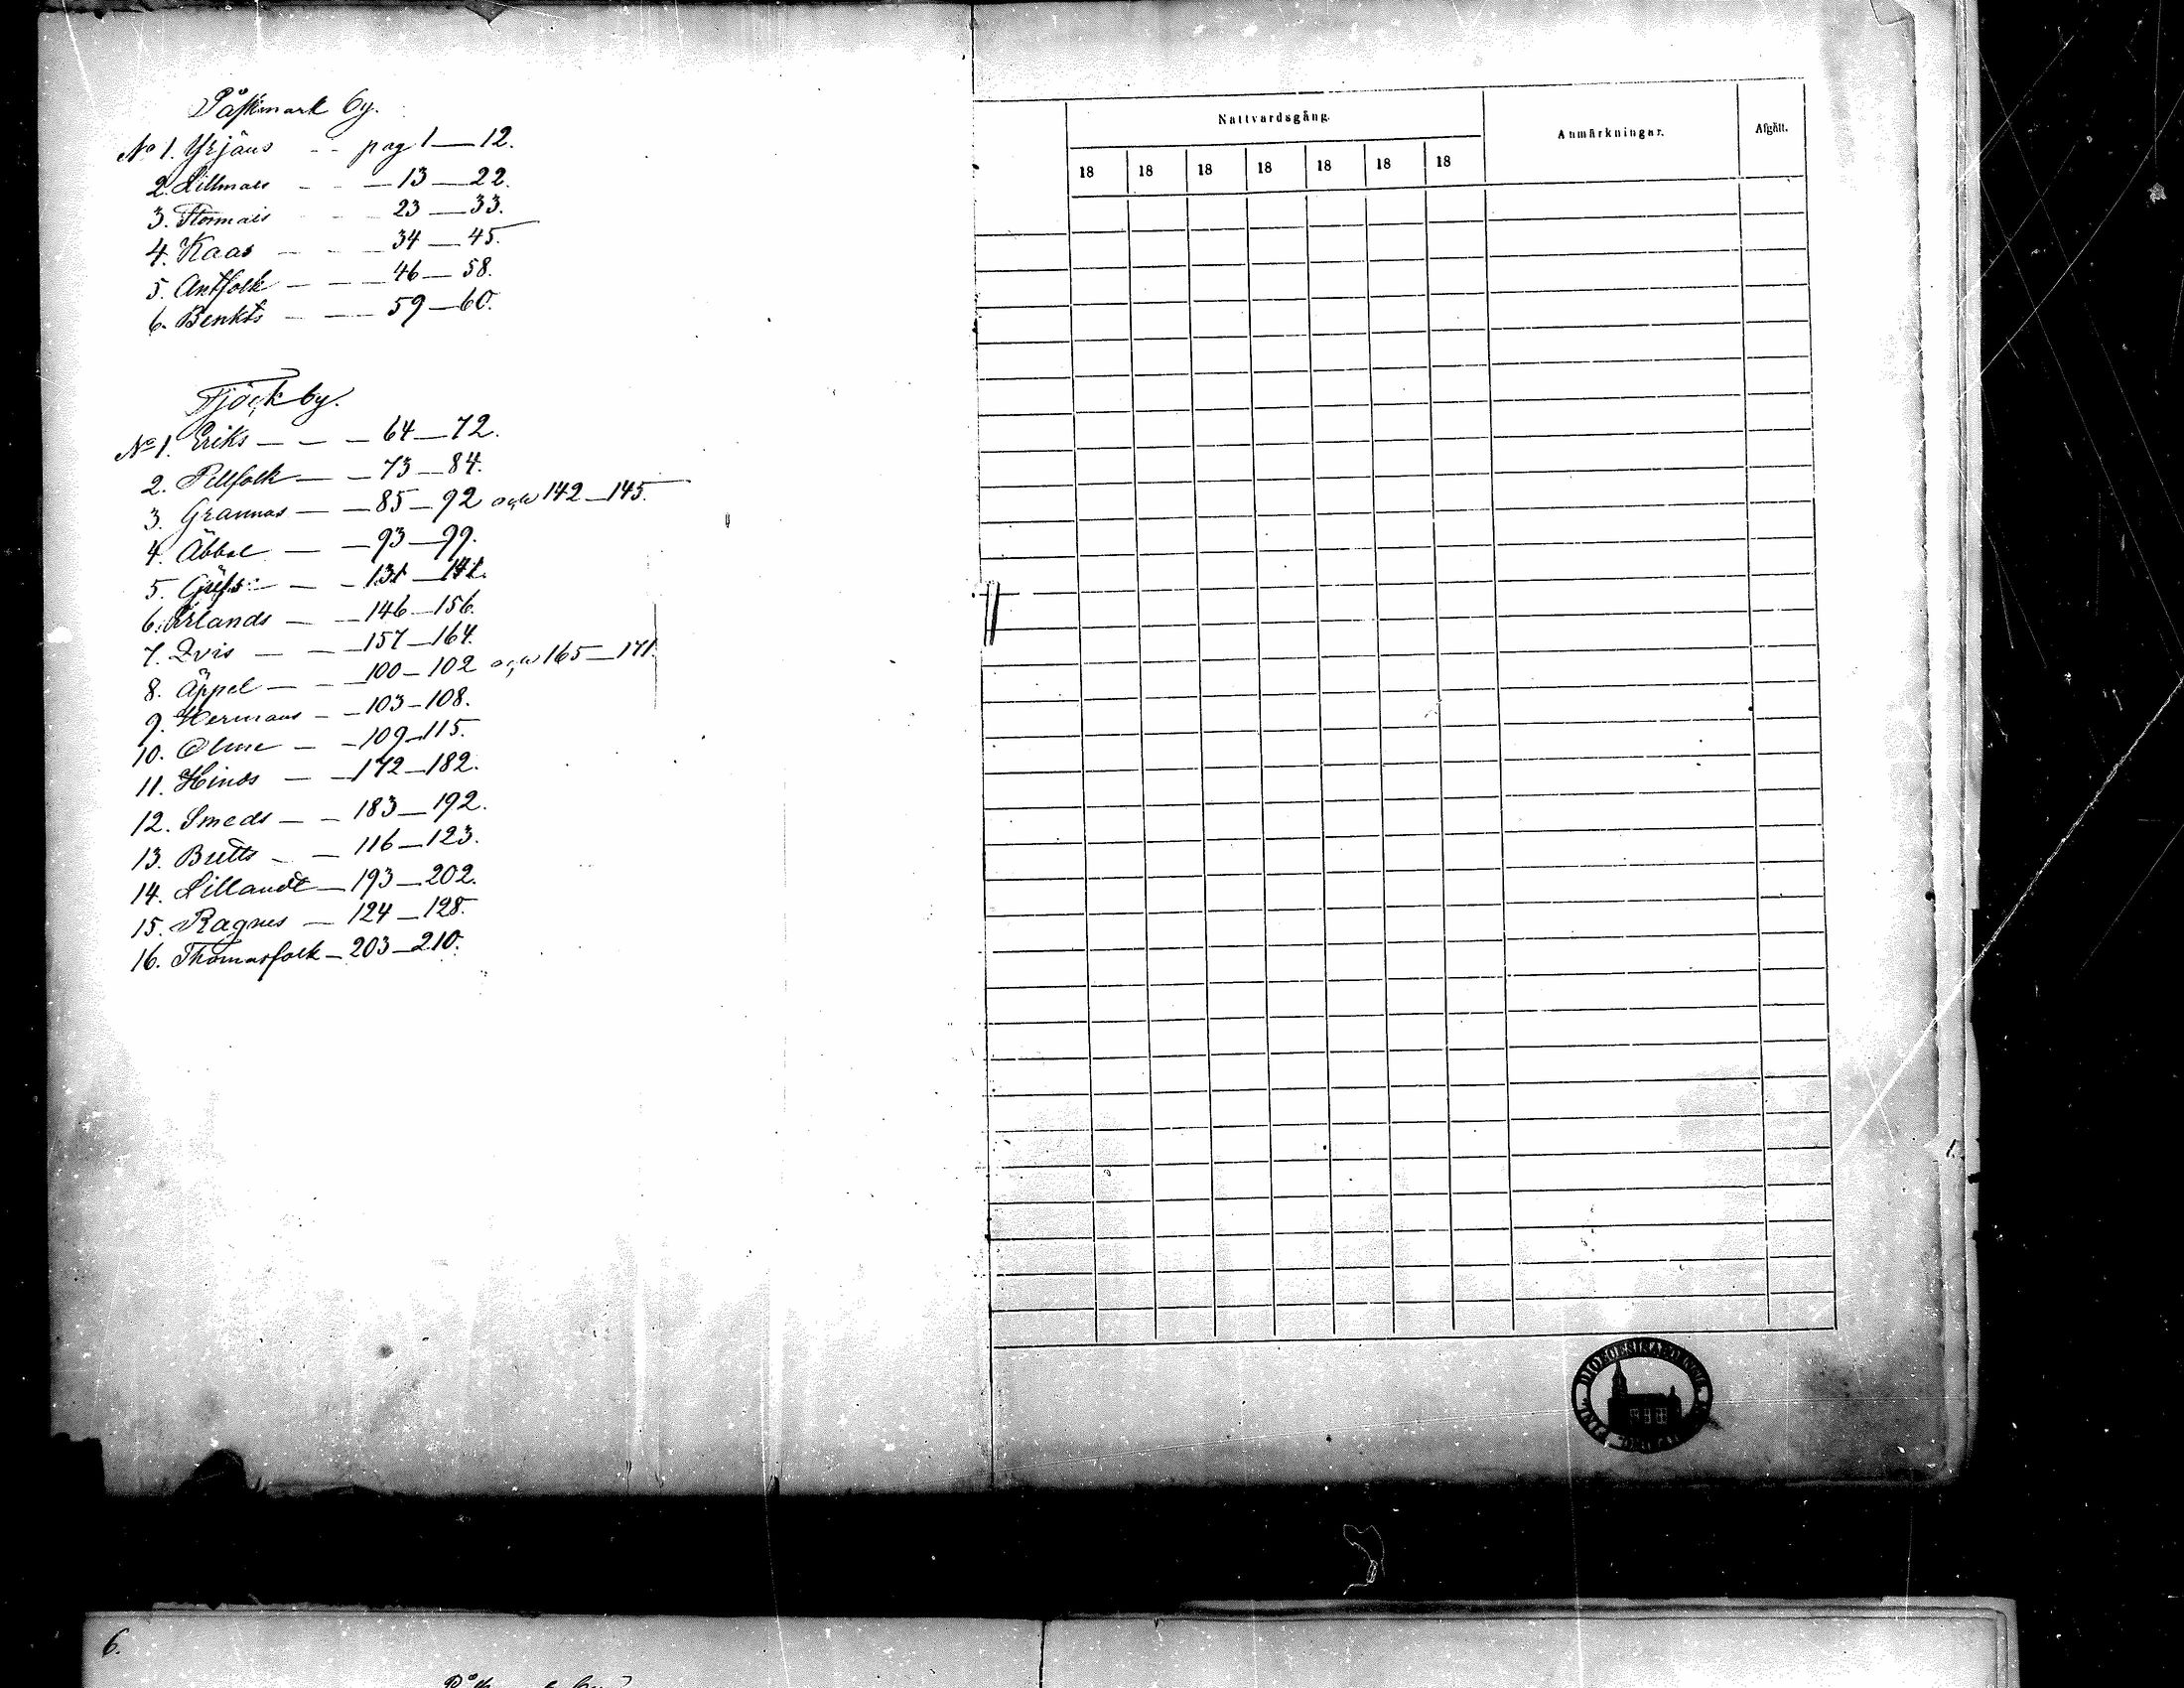 Påskmark by.
No 1. Yrjäns - - pag 1 — 12.
2. Lillmars - - — 13 — 22.
3. Stormars - - 23 — 33.
4. Kaas — - — 34 — 45.
5. Antfolk — — — 46 — 58.
6. Benkts — — 59 — 60.
Tjöck by.
No 1. Eriks — — — 64 — 72.
2. Pellfolk — — 73 — 84.
3. Grannas — — 85 — 92 och 142 — 145.
4. Äbbel — — 93 — 99.
5. — — 131 — 141.
6. Erlands — — 146 — 156.
7. Qvis — — 157 — 164.
8. Äppel — — 100 — 102 och 165 — 171.
9. Hermans — — 103 — 108.
10. Olme — — 109 — 115.
11. Hinds — — 172 — 182.
12. Smeds — — 183 — 192.
13. Britts — — 116 — 123.
14. Lillandt — 193 — 202.
15. Ragnes — 124 — 128.
16. Thomasfolk — 203 — 210.
Nattvardsgång.
Anmärkningar.
Afgått.
18 18 18 18 18 18 18
1.
6.